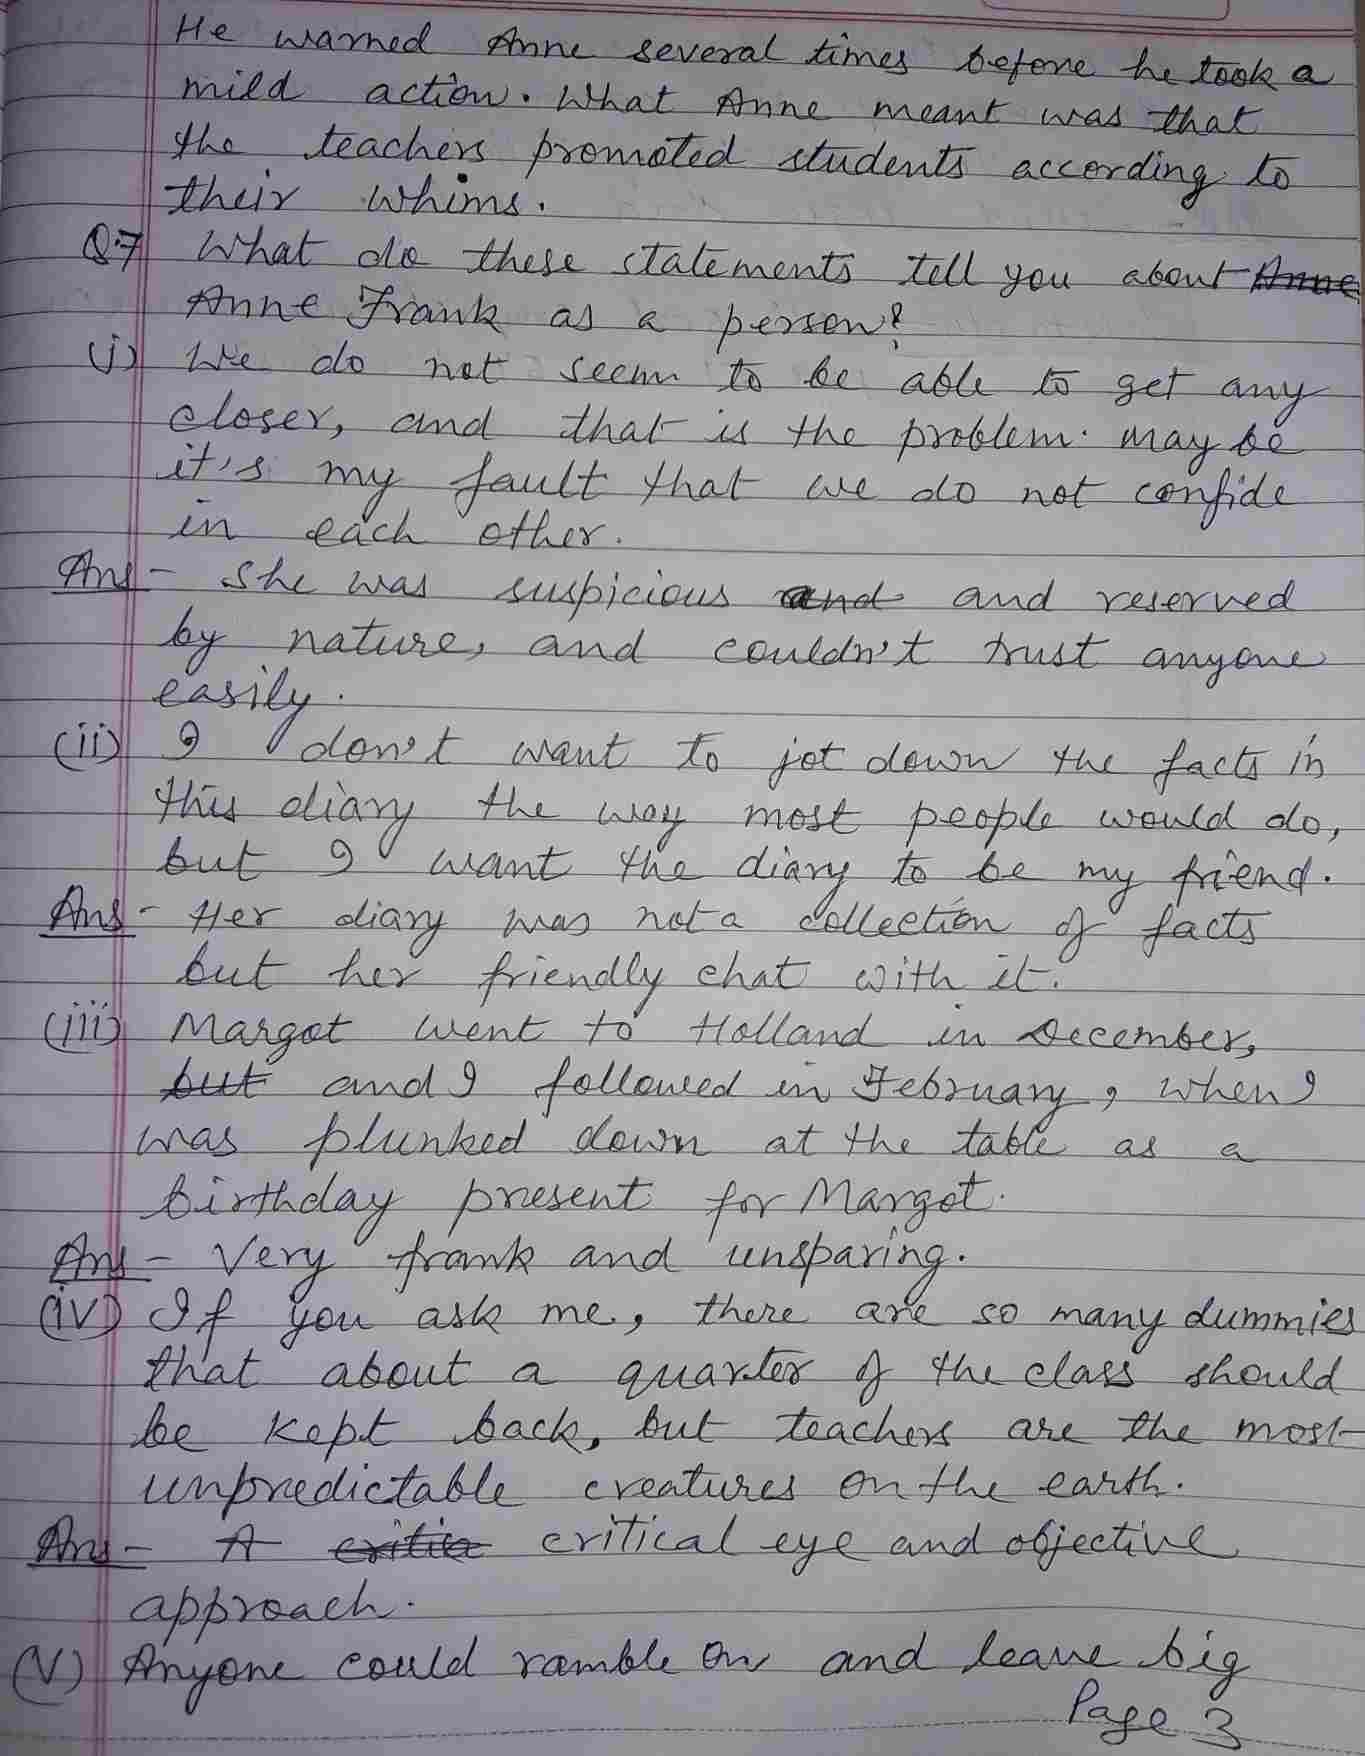 He warned Anne several times before he took a
mild action. What Anne meant was that
the teachers promoted students according to
their whims.
Q.7 What do these statements tell you about Anne
Anne Frank as a person?
(i) We do not seem to be able to get any
closer, and that is the problem. may be
it's my fault that we do not confide
in each other.
Ans - She was suspicious and and reserved
by nature, and couldn't trust anyone
easily.
(ii) I don't want to jot down the facts in
this diary the way most people would do,
but I want the diary to be my friend.
Ans - Her diary was not a collection of facts
but her friendly chat with it.
(iii) Margot went to Holland in December,
but and I followed in February, when I
was plunked down at the table as a
birthday present for Margot.
Ans - Very frank and unsparing.
(iv) If you ask me, there are so many dummies
that about a quarter of the class should
be kept back, but teachers are the most
unpredictable creatures on the earth.
Ans - A critica critical eye and objective
approach.
(V) Anyone could ramble on and leave big
Page 3